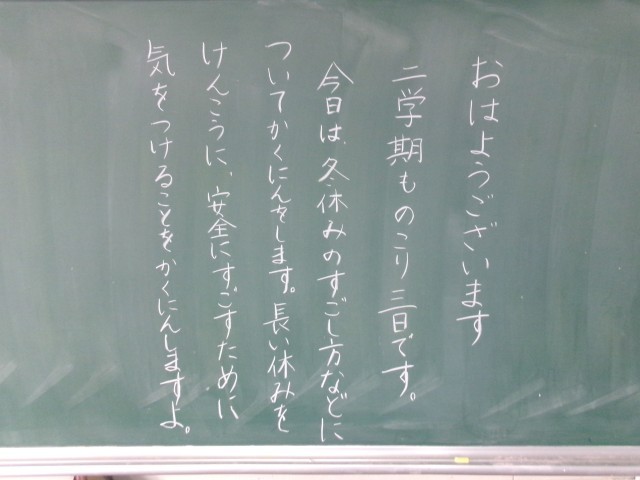 おはようございます
二学期ものこり三日です。
今日は、冬休みのすごし方などに
ついてかくにんをします。長い休みを
けんこうに、安全にすごすために
気をつけることをかくにんしますよ。